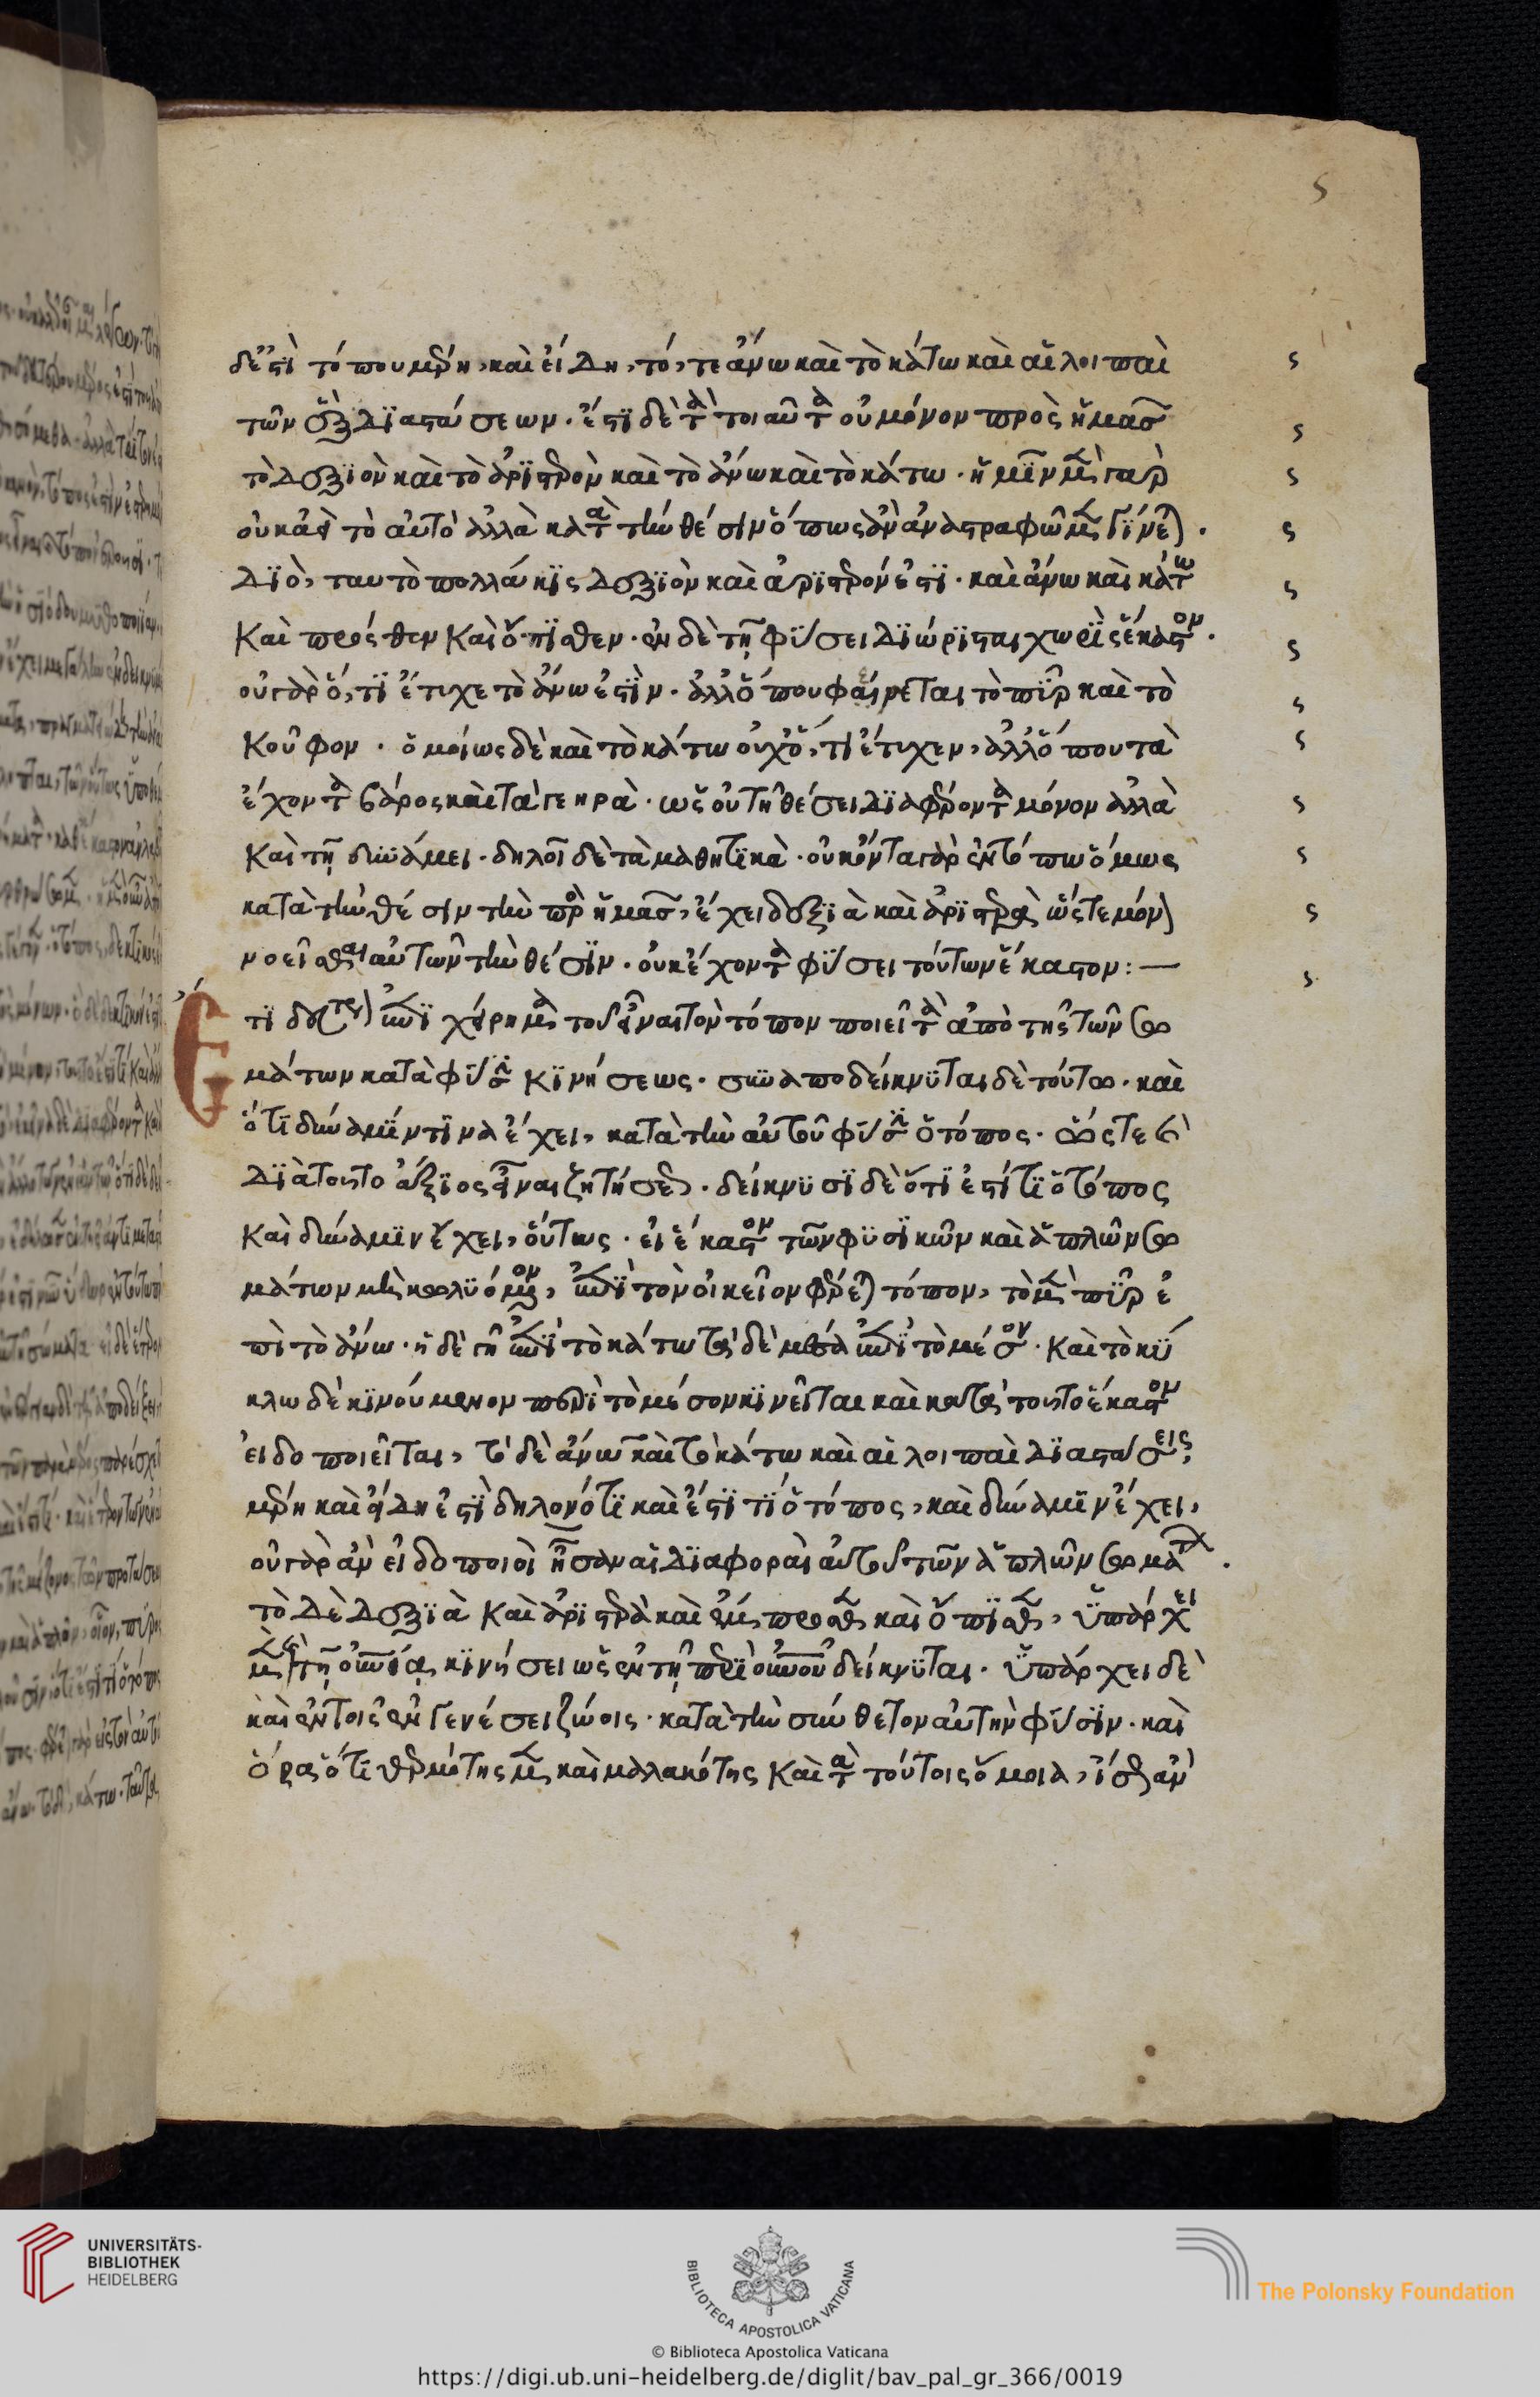 ς
δέ ἐστι τόπου μέρη, καὶ εἴδη, τό, τε ἄνω καὶ τὸ κάτω καὶ αἱ λοιπαὶ
τῶν ἓξ διαστάσεων. ἔστι δὲ τὰ τοιαῦτα οὐ μόνον πρὸς ἡμᾶς
τὸ δεξιὸν καὶ τὸ ἀριστερὸν καὶ τὸ ἄνω καὶ τὸ κάτω. ἡμῖν μὲν γὰρ
οὐκ ἀεὶ τὸ αὐτὸ ἀλλὰ κατὰ τὴν θέσιν ὅπως ἂν ἀναστραφῶμεν γίνεται.
διὸ, ταυτὸ πολλάκις δεξιὸν καὶ ἀριστερόν ἐστι. καὶ ἄνω καὶ κάτω
καὶ πρόσθεν καὶ ὄπισθεν. ἐν δὲ τῇ φύσει διώρισται χωρὶς ἕκαστον.
οὐ γὰρ ὅ, τι ἔτυχε τὸ ἄνω ἐστὶν. ἀλλ' ὅπου φαίρεται τὸ πῦρ καὶ τὸ
κοῦφον. ὁμοίως δὲ καὶ τὸ κάτω οὐχ ὅ, τι ἔτυχεν, ἀλλ' ὅπου τὰ
ἔχοντα βάρος καὶ τὰ γεηρὰ. ὡς οὐ τῇ θέσει διαφέροντα μόνον ἀλλὰ
καὶ τῇ δυνάμει. δηλοῖ δὲ τὰ μαθητικὰ. οὐκ ὄντα γὰρ ἐν τόπω ὅμως
κατὰ τὴν θέσιν τὴν πρὸς ἡμᾶς, ἔχει δεξιὰ καὶ ἀριστερὰ ὥστε μόνον
νοεῖσθαι αὐτῶν τὴν θέσιν. οὐκ ἔχοντα φύσει τούτων ἕκαστον:—
Ἔτι δευτέραν ἐπιχείρημα τοῦ εἶναι τὸν τόπον ποιεῖται ἀπὸ τῆς τῶν σω
μάτων κατὰ φύσιν κινήσεως. συναποδείκνυται δὲ τούτω. καὶ
ὅτι δύναμίν τινα ἔχει, κατὰ τὴν αὑτοῦ φύσιν ὁ τόπος. ὥστε καὶ
διὰ τοῦτο ἄξιος εἶναι ζητήσεως. δείκνυσι δὲ ὅτι ἐστί τι ὁ τόπος
καὶ δύναμιν ἔχει, οὕτως. εἰ ἕκαστον τῶν φυσικῶν καὶ ἁπλῶν σω
μάτων μὴ κωλυόμενον, ἐπὶ τὸν οἰκεῖον φέρεται τόπον, τὸ μὲν πῦρ ἐ
πὶ τὸ ἄνω. ἡ δὲ γῆ ἐπὶ τὸ κάτω τὰ δὲ μεταξὺ ἐπὶ τὸ μέσον. καὶ τὸ κύ
κλω δὲ κινούμενον περὶ τὸ μέσον κινεῖται καὶ κατὰ τοῦτο ἕκαστον
εἰδοποιεῖται, τὸ δὲ ἄνω καὶ τὸ κάτω καὶ αἱ λοιπαὶ διαστάσεις,
μέρη καὶ εἴδη ἐστὶ δηλονότι καὶ ἔστι τι ὁ τόπος, καὶ δύναμιν ἔχει,
οὐ γὰρ ἂν εἰδοποιοὶ ἦσαν αἱ διαφοραὶ αὐτοῦ τῶν ἁπλῶν σωμάτων.
τὸ δὲ δεξιὰ καὶ ἀριστερὰ καὶ ἔμπροσθεν καὶ ὄπισθεν, ὑπάρχει
μὲν καὶ τῇ οὐρανίᾳ κινήσει ὡς ἐν τῇ περὶ οὐρανοῦ δείκνυται. ὑπάρχει δὲ
καὶ ἐν τοῖς ἐν γενέσει ζώοις. κατὰ τὴν σύνθετον αὐτὴν φύσιν. καὶ
ὅρα ὅτι θερμότης μὲν καὶ μαλακότης καὶ τὰ τούτοις ὅμοια, ἴσως ἂν
UNIVERSITÄTS-
BIBLIOTHEK
HEIDELBERG
BIBLIOTECA APOSTOLICA VATICANA
The Polonsky Foundation
© Biblioteca Apostolica Vaticana
https://digi.ub.uni-heidelberg.de/diglit/bav_pal_gr_366/0019